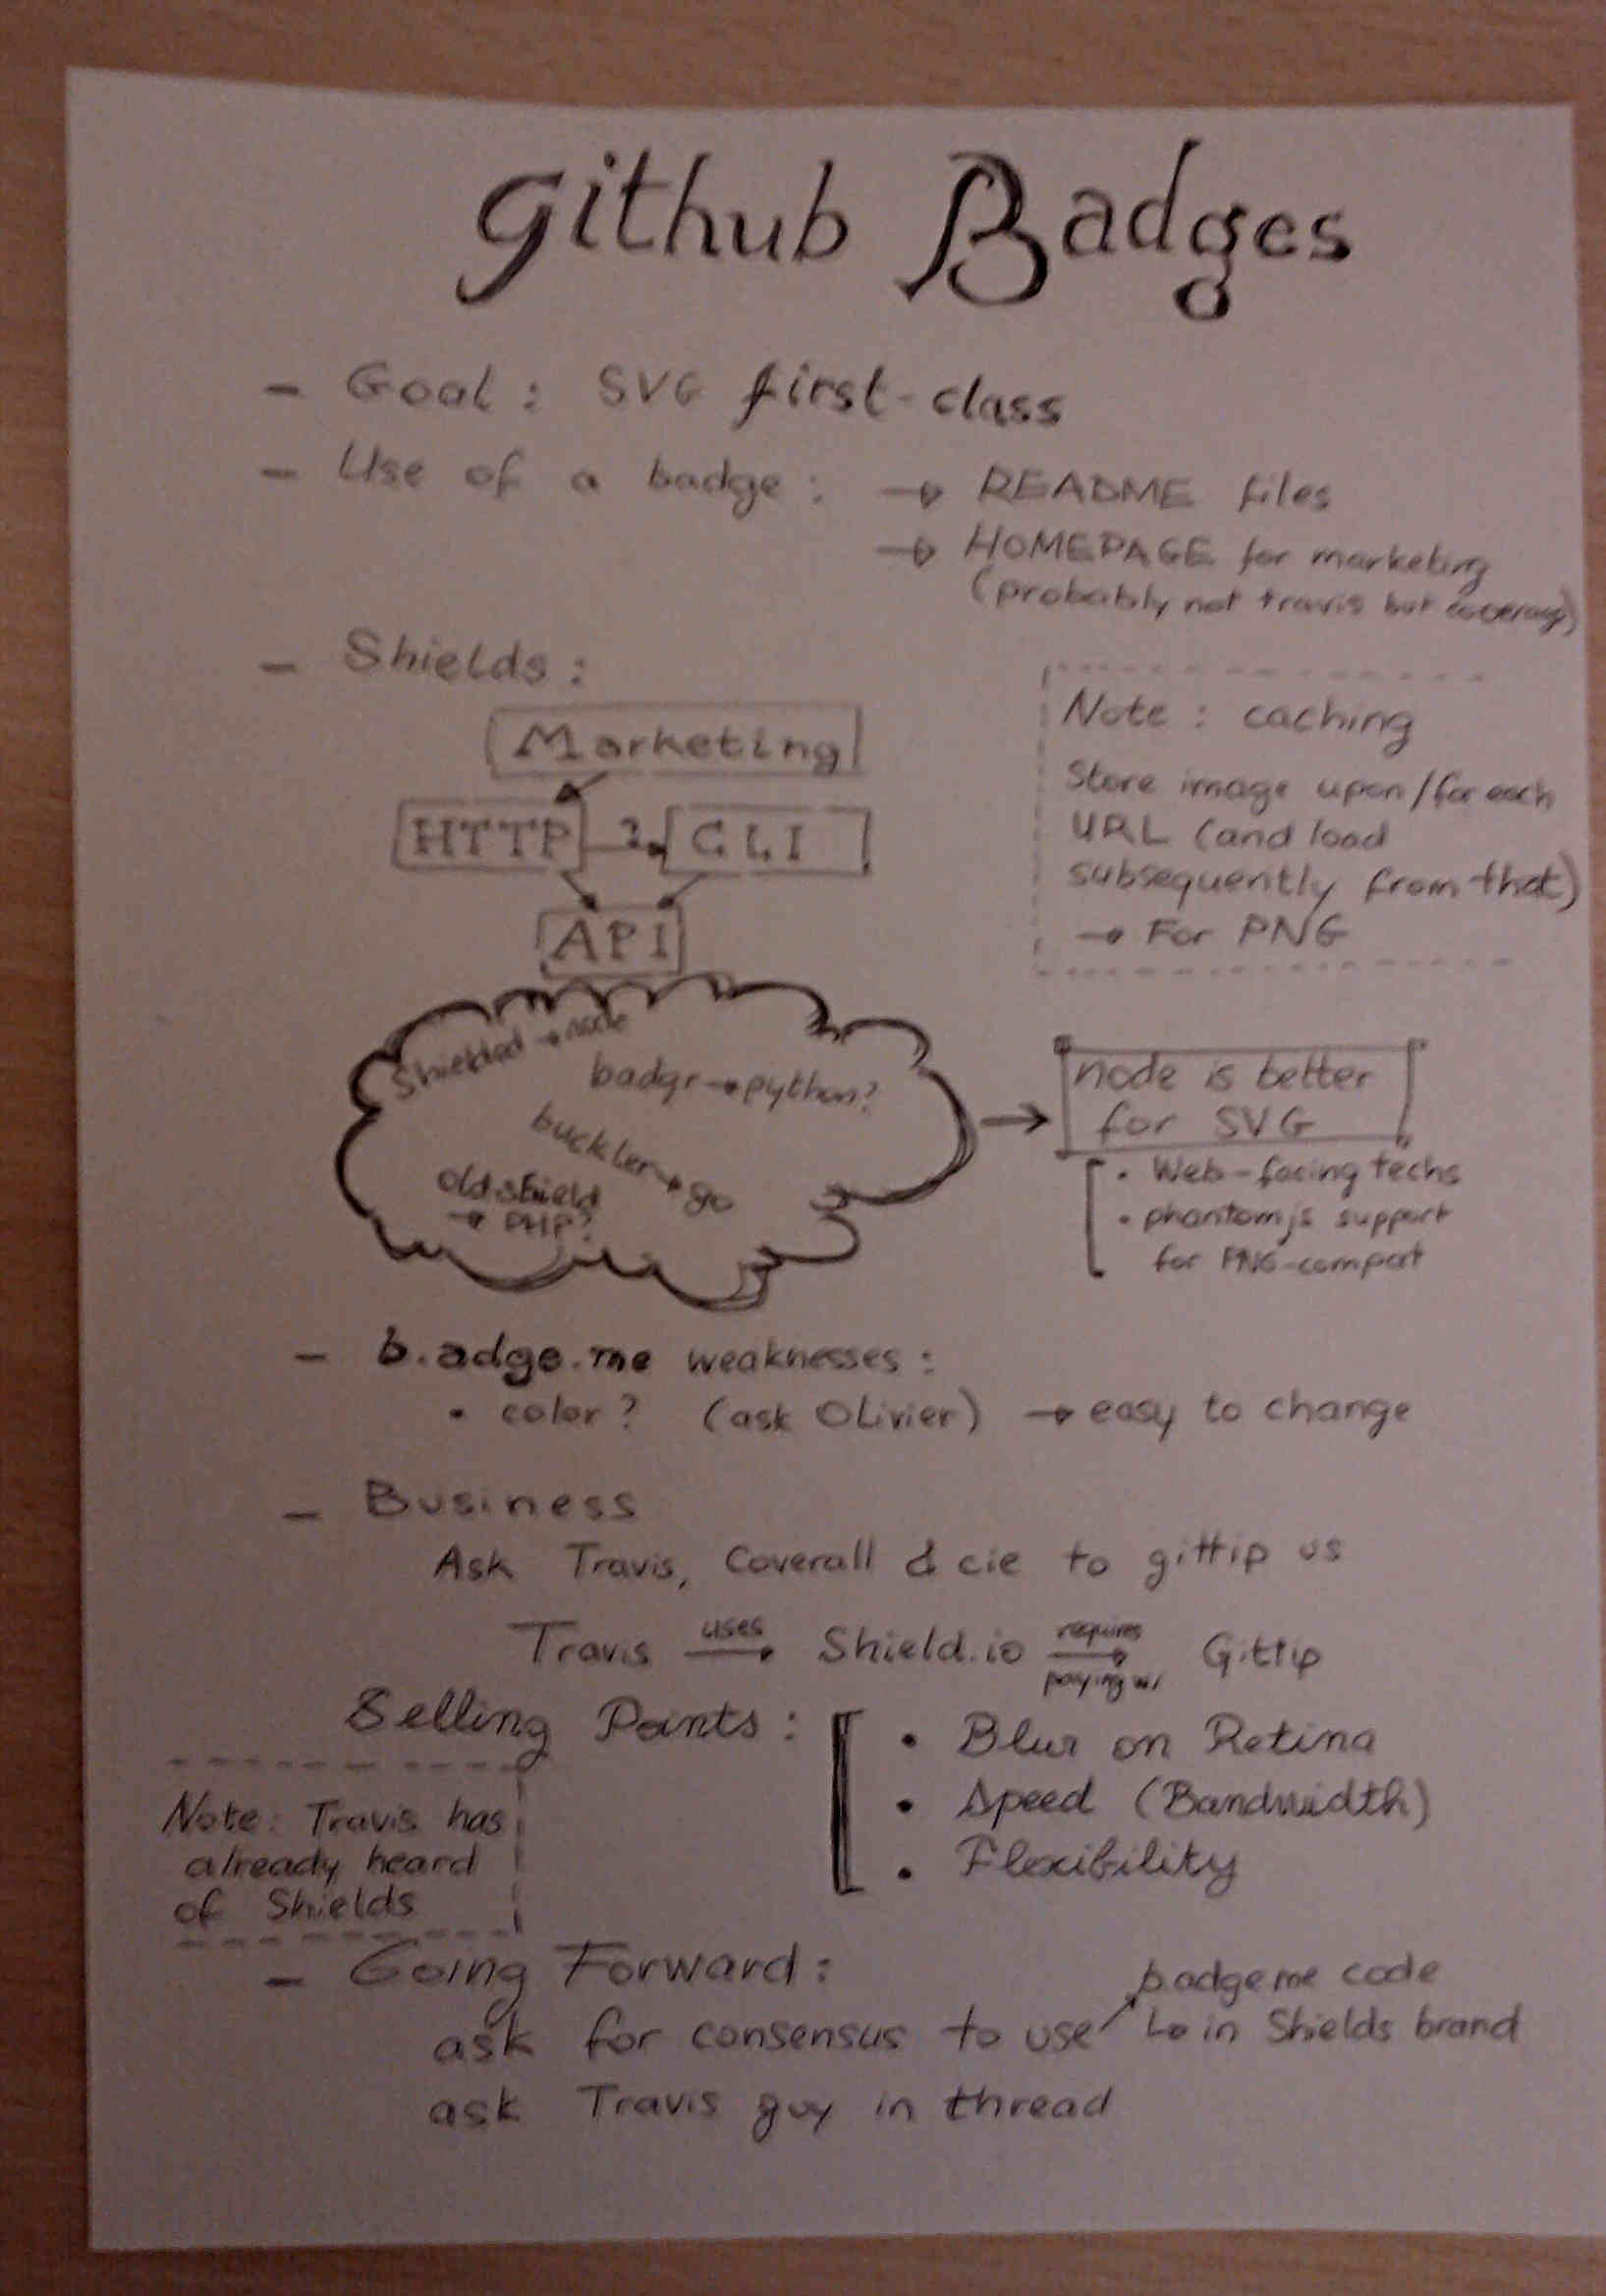 Github Badges
- Goal : SVG first-class
- Use of a badge : → README files
→ HOMEPAGE for marketing
(probably not travis but
- Shields :
Marketing
HTTP ? CLI
API
Note : caching
Store image upon/for each
URL (and load
subsequently from that)
→ For PNG
Shielded → node
badgr → python?
buckler → go
old shield
→ PHP?
→ node is better
for SVG
• Web-facing techs
• phantomjs support
for PNG-compat
- b.adge.me weaknesses :
• color ? (ask Olivier) → easy to change
- Business
Ask Travis, Coverall & cie to gittip us
Travis uses → Shield.io requires → paying w/ Gittip
Selling Points :
• Blur on Retina
• Speed (Bandwidth)
• Flexibility
Note: Travis has
already heard
of Shields
- Going Forward :
ask for consensus to use → badgeme code
↳ in Shields brand
ask Travis guy in thread